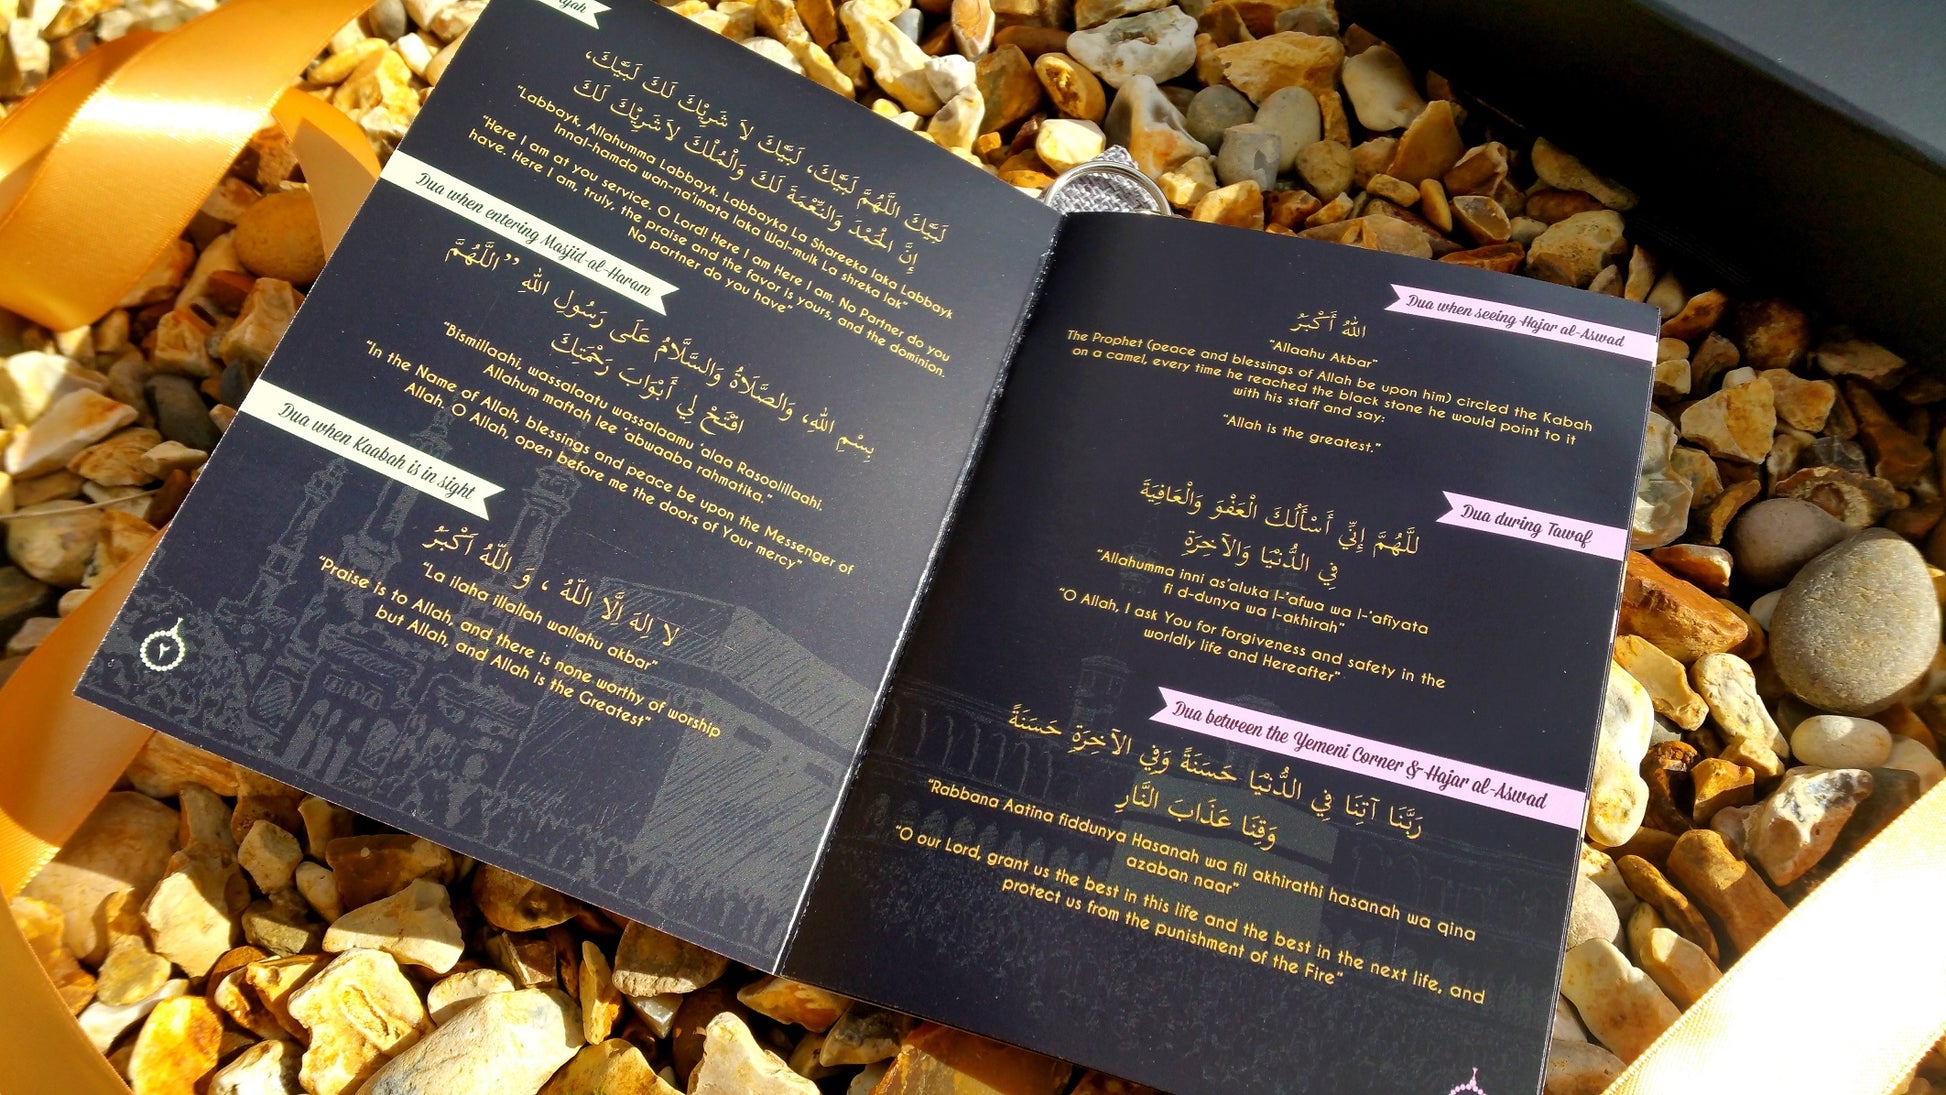 لَبَّيْكَ اللَّهُمَّ لَبَّيْكَ، لَبَّيْكَ لاَ شَرِيْكَ لَكَ لَبَّيْكَ،
إِنَّ الْحَمْدَ وَالنِّعْمَةَ لَكَ وَالْمُلْكَ لاَ شَرِيْكَ لَكَ
"Labbayk. Allahumma Labbayk. Labbayka La Shareeka laka Labbayk
Innal-hamda wan-na'imata laka Wal-mulk La shreka lak"
"Here I am at you service. O Lord! Here I am Here I am. No Partner do you
have. Here I am, truly, the praise and the favor is yours, and the dominion.
No partner do you have"
Dua when entering Masjid-al-Haram
بِسْمِ اللهِ، وَالصَّلَاةُ وَالسَّلَامُ عَلَى رَسُولِ اللهِ ”اللَّهُمَّ
افْتَحْ لِي أَبْوَابَ رَحْمَتِكَ
"Bismillaahi, wassalaatu wassalaamu 'alaa Rasoolillaahi.
Allahum maftah lee 'abwaaba rahmatika."
"In the Name of Allah, blessings and peace be upon the Messenger of
Allah. O Allah, open before me the doors of Your mercy"
Dua when Kaabah is in sight
لَا اِلٰهَ اِلَّا اللّٰهُ ، وَ اللّٰهُ اَكْبَرُ
"La ilaha illallah wallahu akbar"
"Praise is to Allah, and there is none worthy of worship
but Allah, and Allah is the Greatest"
٢
Dua when seeing Hajar al-Aswad
اللهُ أَكْبَرُ
"Allaahu Akbar"
The Prophet (peace and blessings of Allah be upon him) circled the Kabah
on a camel, every time he reached the black stone he would point to it
with his staff and say:
"Allah is the greatest."
Dua during Tawaf
للَّهُمَّ إِنِّي أَسْأَلُكَ الْعَفْوَ وَالْعَافِيَةَ
فِي الدُّنْيَا وَالآخِرَةِ
"Allahumma inni as'aluka l-'afwa wa l-'afiyata
fi d-dunya wa l-akhirah"
"O Allah, I ask You for forgiveness and safety in the
worldly life and Hereafter"
Dua between the Yemeni Corner & Hajar al-Aswad
رَبَّنَا آتِنَا فِي الدُّنْيَا حَسَنَةً وَفِي الآخِرَةِ حَسَنَةً
وَقِنَا عَذَابَ النَّارِ
"Rabbana Aatina fiddunya Hasanah wa fil akhirathi hasanah wa qina
azaban naar"
"O our Lord, grant us the best in this life and the best in the next life, and
protect us from the punishment of the Fire"